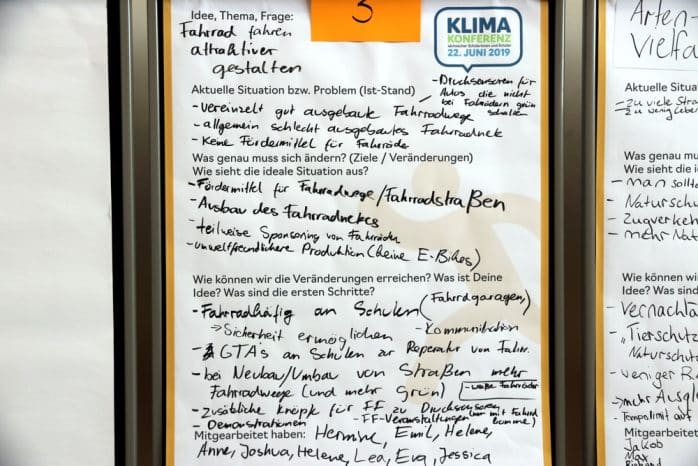 3
Idee, Thema, Frage:
Fahrrad fahren
attraktiver
gestalten
KLIMA
KONFERENZ
sächsischer Schülerinnen und Schüler
22. JUNI 2019
- Drucksensoren für
Autos die nicht
bei Fahrrädern grün
schalten
Aktuelle Situation bzw. Problem (Ist-Stand)
- vereinzelt gut ausgebaute Fahrradwege
- allgemein schlecht ausgebautes Fahrradnetz
- Keine Fördermittel für Fahrräder
Was genau muss sich ändern? (Ziele / Veränderungen)
Wie sieht die ideale Situation aus?
- Fördermittel für Fahrradwege/Fahrradstraßen
- Ausbau des Fahrradnetzes
- teilweise Sponsoring von Fahrrädern
- umweltfreundlichere Produktion (keine E-Bikes)
Wie können wir die Veränderungen erreichen? Was ist Deine
Idee? Was sind die ersten Schritte?
- Fahrradkäfig an Schulen (Fahrdgaragen)
→ Sicherheit ermöglichen - Kommunikation
- GTA's an Schulen zur Reperatur von Fahrr.
- bei Neubau/Umbau von Straßen mehr
Fahrradwege (und mehr grün) - weiße Fahrräder
- Zusätzliche Knöpfe für FF zu Drucksensoren
- Demonstrationen - FF-Veranstaltungen (nur mit Fahrrad
komme)
Mitgearbeitet haben: Hermine, Emil, Helene,
Anne, Joshua, Helene, Lea, Eva, Jessica
Arten-
Vielfa
Aktuelle Situa
- zu viele Stra
- zu wenig Leben
Was genau mu
Wie sieht die i
- man sollte
- Naturschu
- Zugverkeh
- mehr Nat
Wie können wi
Idee? Was sind
- Vernachlä
- "Tierschutz
Naturschutz
- weniger R
→ mehr Ausgl
- Tempolimit auf
Mitgearbeitet
Jakob
Max